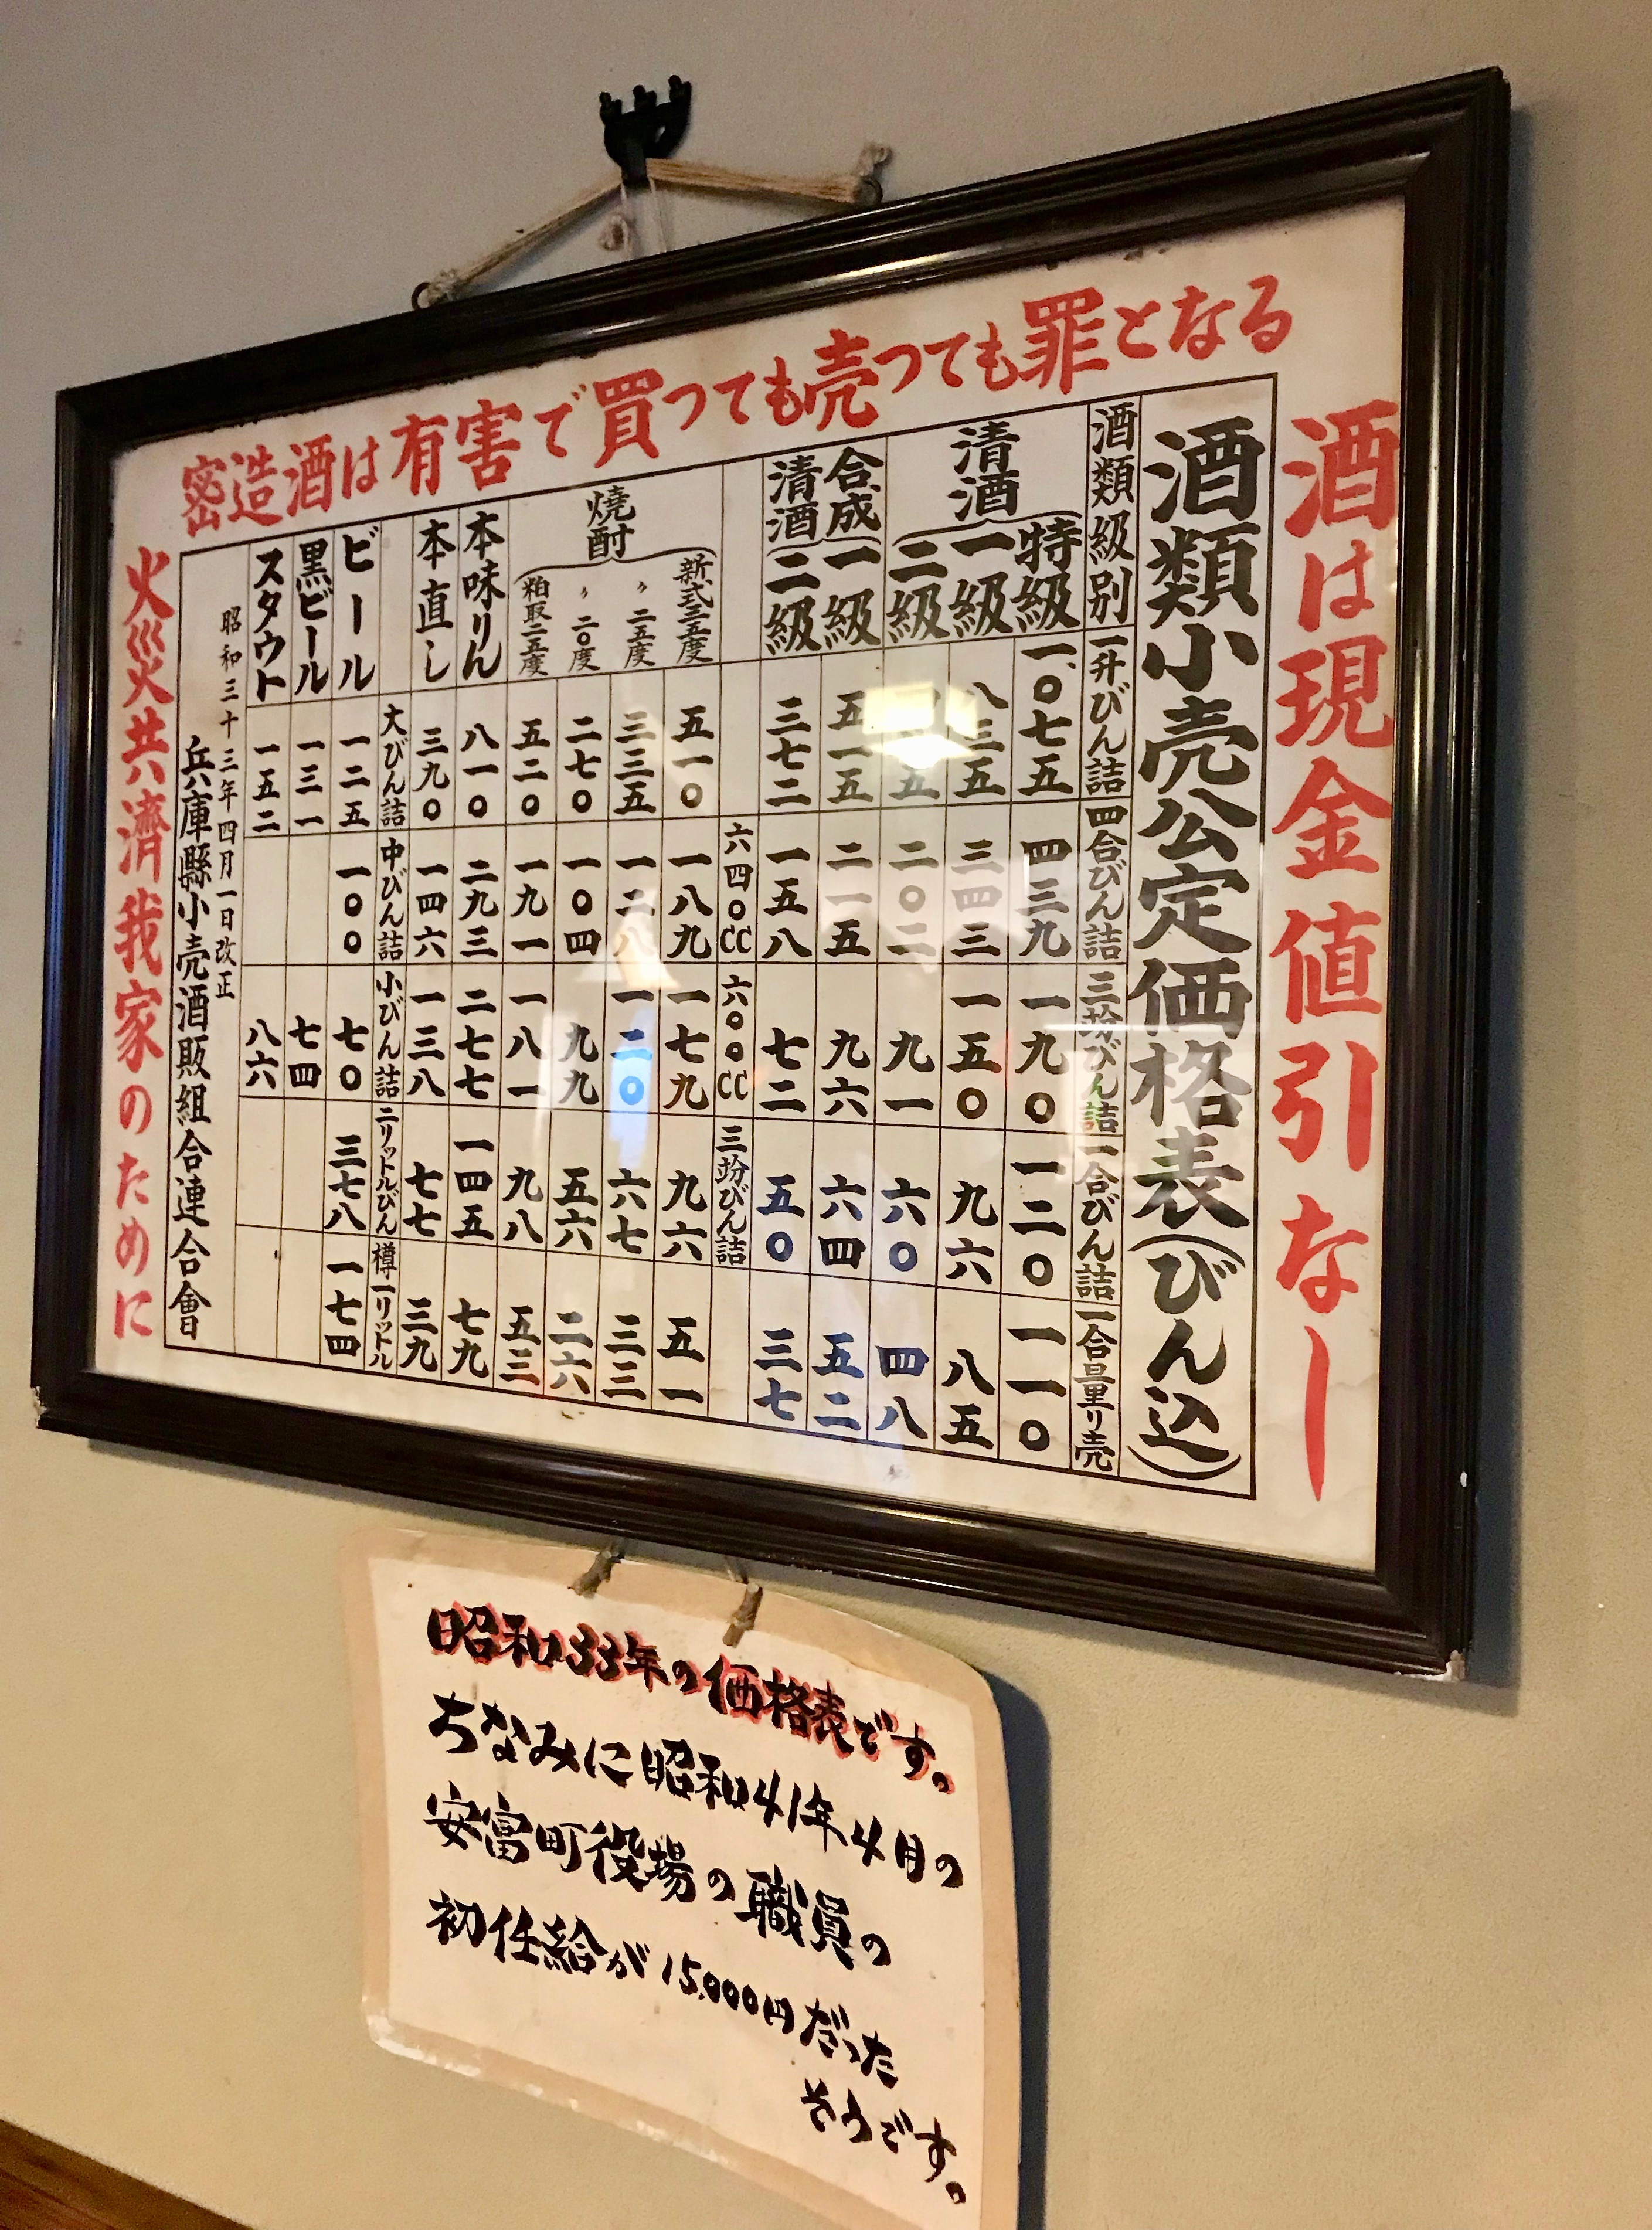 酒は現金値引なし
密造酒は有害で買つても売つても罪となる
酒類小売公定価格表(びん込)
酒類級別 一升びん詰 四合びん詰 三㔟びん詰 一合びん詰 一合量り売
清酒 特級 一、〇七五 四三九 一九〇 一二〇 一一〇
一級 八三五 三四三 一五〇 九六 八五
二級 二〇二 九一 六〇 四八
合成清酒 一級 五一五 二一五 九六 六四 五二
二級 三七二 一五八 七二 五〇 三七
六四〇CC 六〇〇CC 三㔟びん詰
焼酎 新式三五度 五一〇 一八九 一七九 九六 五一
〃 二五度 三三五 一二八 一二〇 六七 三三
〃 二〇度 二七〇 一〇四 九九 五六 二六
粕取二五度 五二〇 一九一 一八一 九八 五三
本味りん 八一〇 二九三 二七七 一四五 七九
本直し 三九〇 一四六 一三八 七七 三九
大びん詰 中びん詰 小びん詰 二リットルびん 樽一リットル
ビール 一二五 一〇〇 七〇 三七八 一七四
黒ビール 一三一 七四
スタウト 一五二 八六
昭和三十三年四月一日改正
兵庫縣小売酒販組合連合會
火災共濟我家のために
昭和33年の価格表です。
ちなみに昭和41年4月の
安富町役場の職員の
初任給が15,000円だった
そうです。